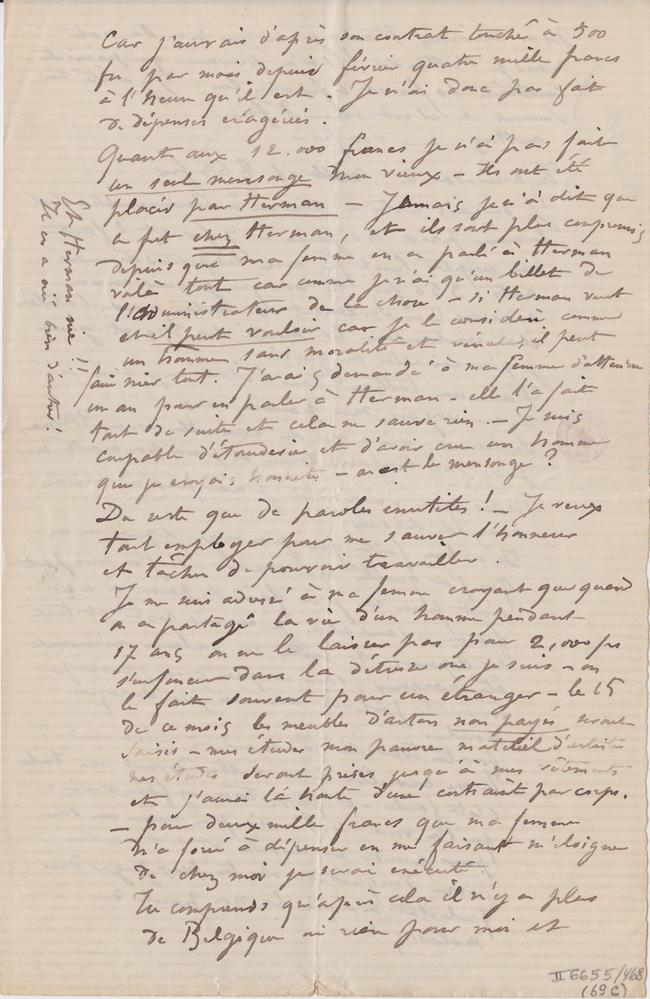 Car j'aurais d'après son contrat touché à 500
fr par mois depuis février quatre mille francs
à l'heure qu'il est. Je n'ai donc pas fait
de dépenses exagérées.
Quant aux 12.000 francs je n'ai pas fait
un seul mensonge mon vieux – Ils ont été
placés par Herman – Jamais je n'ai dit que
ce fut chez Herman, et ils sont plus compromis
depuis que ma femme en a parlé à Herman
voilà tout car comme je n'ai qu'un billet de
l'administrateur de la chose – si Herman veut
et il peut vouloir car je le considère comme
un homme sans moralité et il peut
faire nier tout. J'avais demandé à ma femme d'attendre
un an pour en parler à Herman – elle l'a fait
tout de suite et cela ne sauve rien. – Je suis
coupable d'étourderie et d'avoir cru un homme
que je croyais honnête – où est le mensonge ?
Du reste que de paroles inutiles ! – Je veux
tout employer pour me sauver l'honneur
et tâcher de pouvoir travailler.
Je me suis adressé à ma femme croyant que quand
on a partagé la vie d'un homme pendant
17 ans on ne le laisse pas pour 2,000 frs
s'enfoncer dans la détresse où je suis – on
le fait souvent pour un étranger – le 15
de ce mois les meubles d'artan non payés seront
saisis – mes études mon pauvre matériel d'artiste
mes études seront prises jusqu'à mes vêtements
et j'aurai la honte d'une contrainte par corps.
– pour deux mille francs que ma femme
m'a forcé à dépenser en me faisant m'éloigner
de chez moi je serai exécuté.
Tu comprends qu'après cela il n'y a plus
de Belgique ni rien pour moi et
Et Herman nie !!
Il en a nié bien d'autres !
II 6655/468
(69 C)